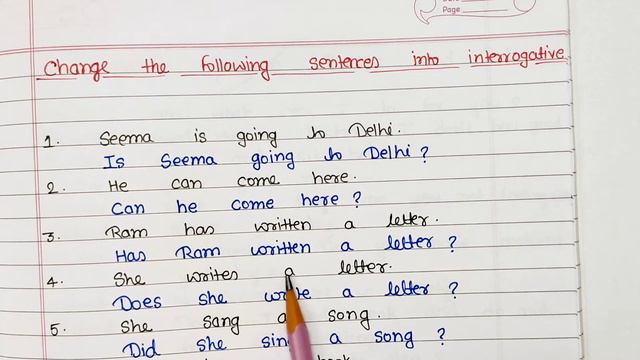 Page
Change the following sentences into interrogative.
1. Seema is going to Delhi.
Is Seema going to Delhi ?
2. He can come here.
Can he come here ?
3. Ram has written a letter.
Has Ram written a letter ?
4. She writes a letter.
Does she write a letter ?
5. She sang a song.
Did she sing a song ?